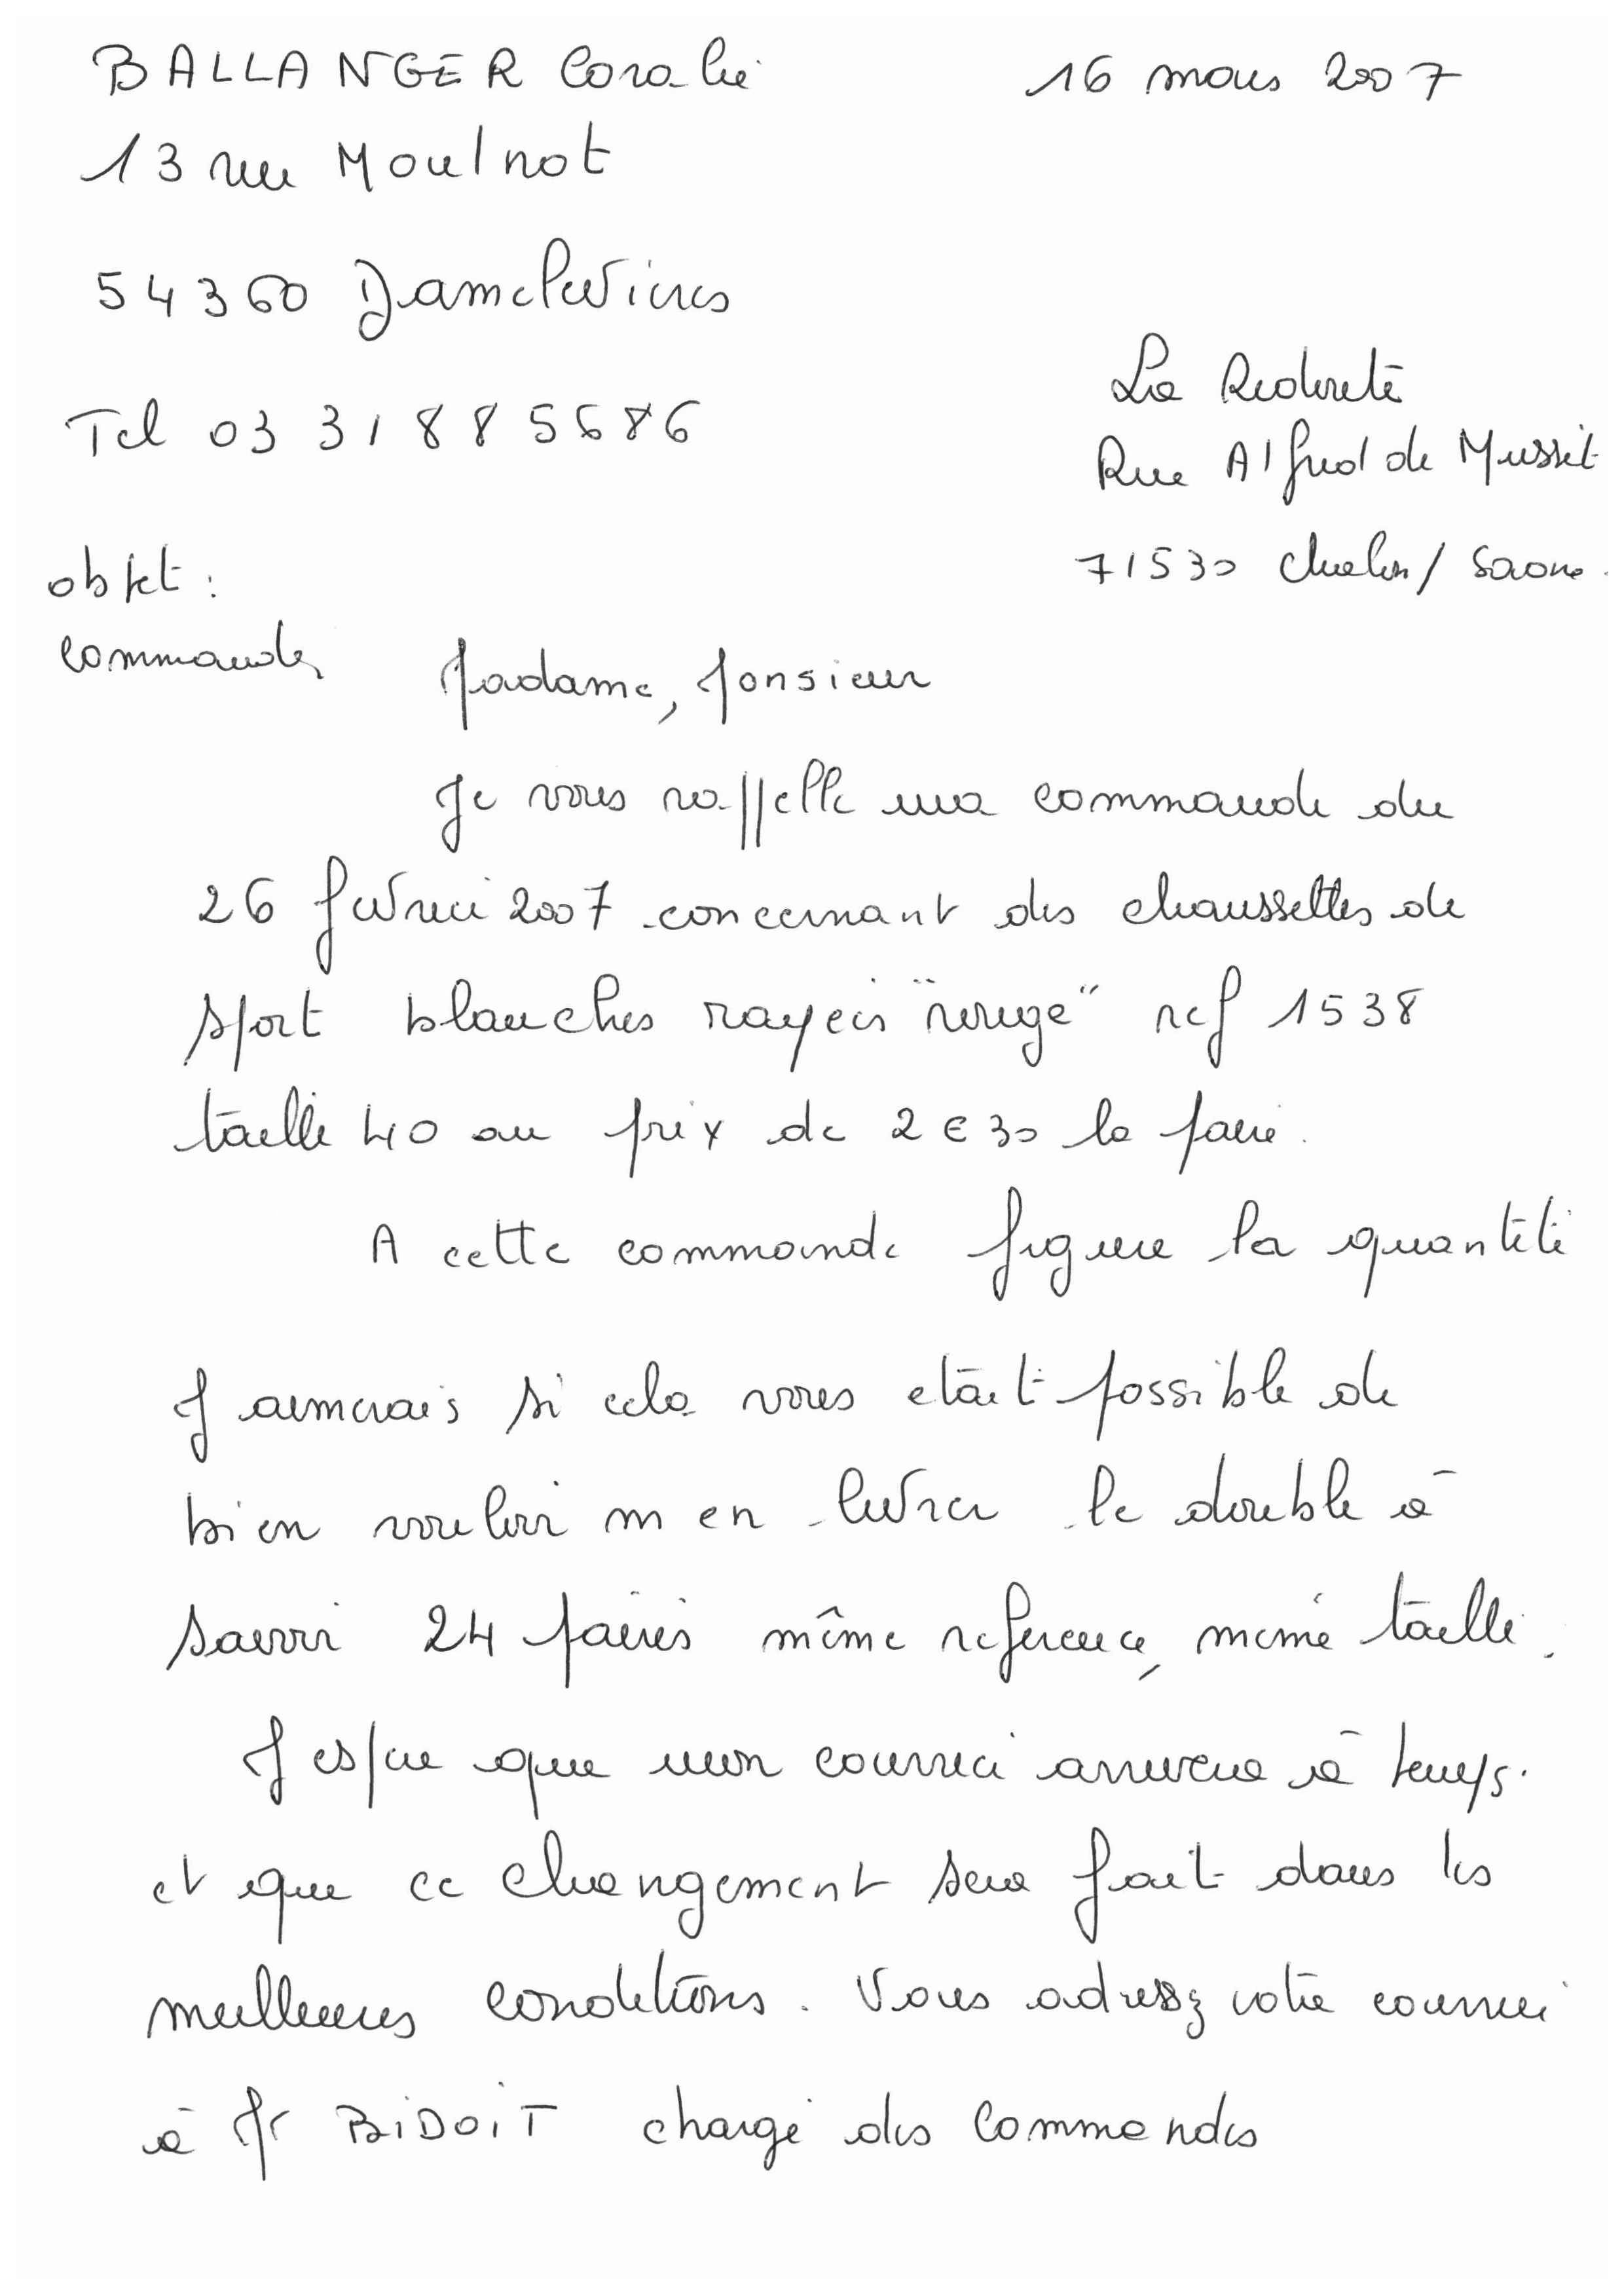 BALLANGER Coralie
16 mars 2007
13 rue Moulnot
54360 Damelevières
La Redoute
Tel 03 31 88 5686
Rue Alfred de Musset
71530 Chalon / Saone
objet :
commande
Madame, Monsieur
Je vous rappelle ma commande du
26 fevrier 2007 concernant des chaussettes de
sport blanches rayées "rouge" ref 1538
taille 40 au prix de 2€30 la paire.
A cette commande figure la quantité
J aimerais si cela vous etait possible de
bien vouloir m en livrer le double à
savoir 24 paires même reference, meme taille.
J espere que mon courrier arrivera à temps
et que ce changement sera fait dans les
meilleures conditions. Vous adressez votre courrier
à Mr BiDOiT chargé des commandes